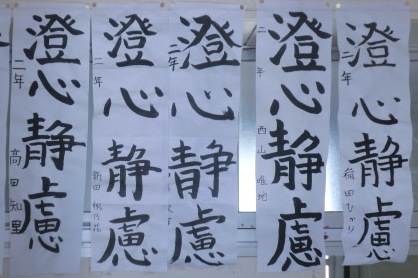 澄心静慮
二年
稲田ひかり
澄心静慮
二年
西山
澄心静慮
二年
澄心静慮
二年
新田
澄心静慮
二年
高田知里